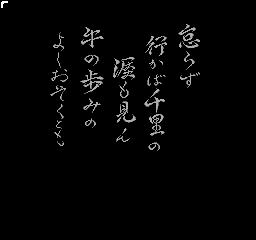 忘らず
行かば千里の
涯も見ん
牛の歩みの
よしおそくとも